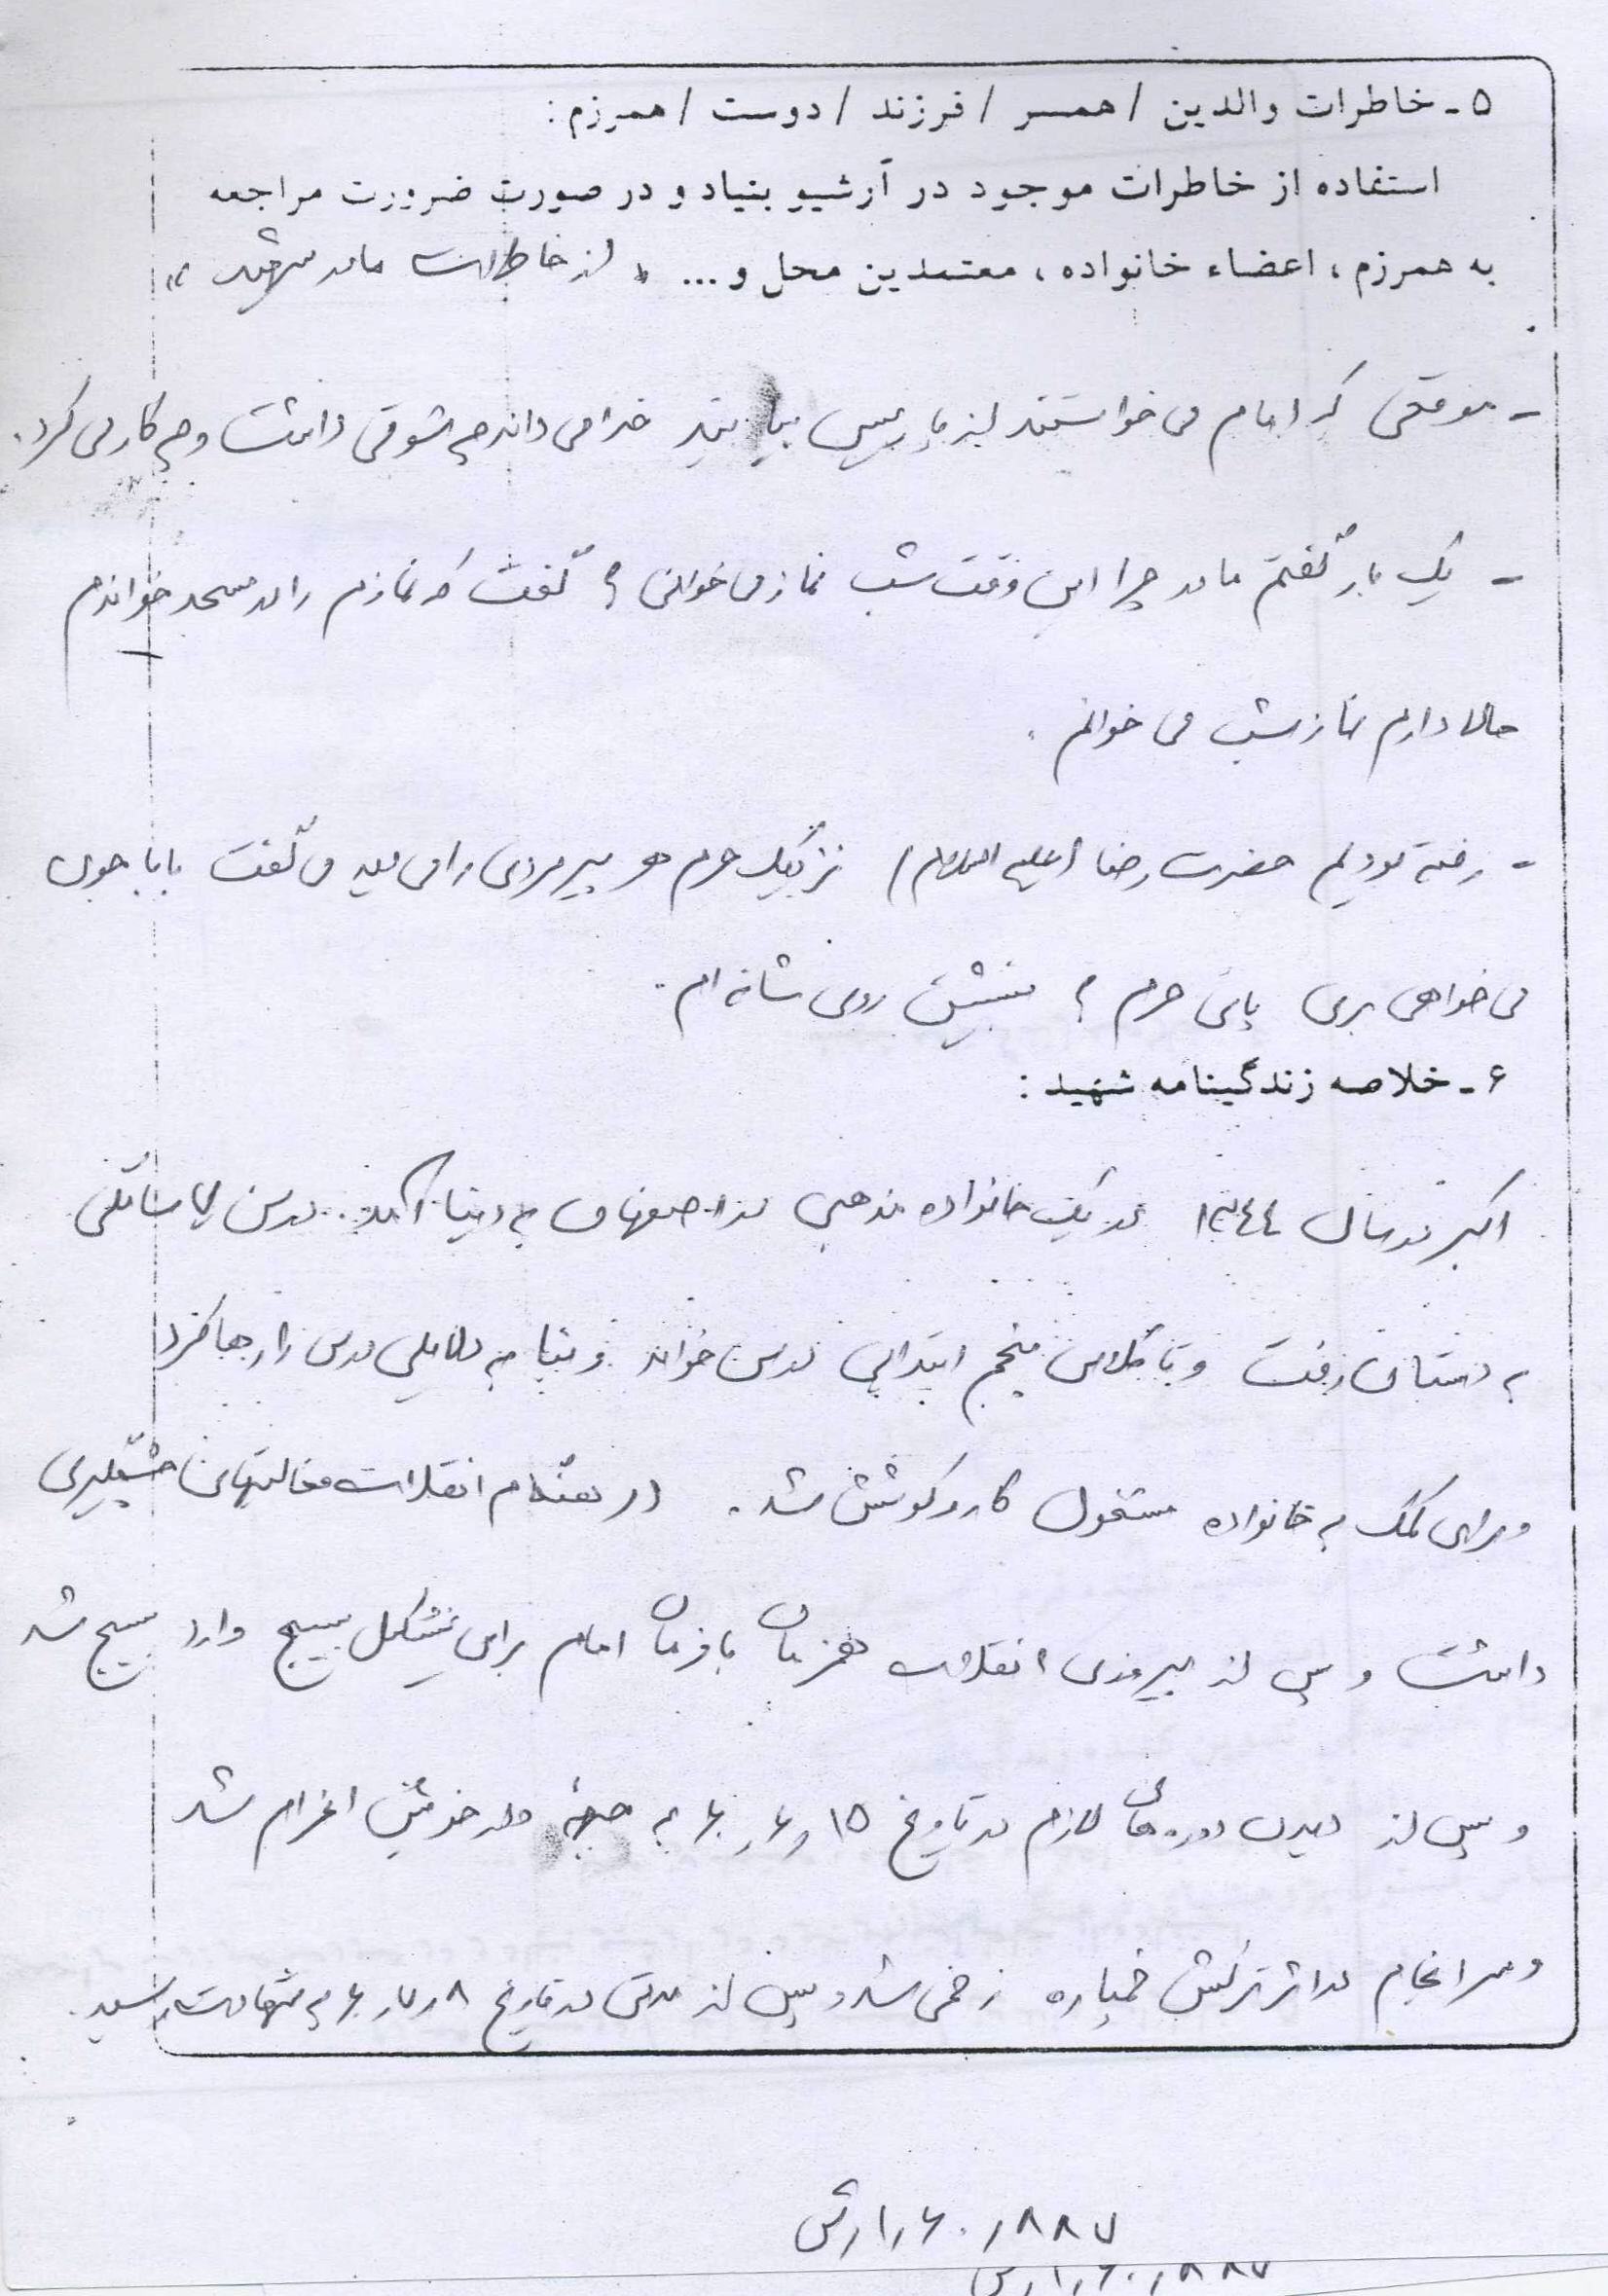 ۵ ـ خاطرات والدین / همسر / فرزند / دوست / همرزم :
استفاده از خاطرات موجود در آرشیو بنیاد و در صورت ضرورت مراجعه
به همرزم ، اعضاء خانواده ، معتمدین محل و ... « از خاطرات مادر شهید »
- موقعی که امام می خواستند از پاریس بیایند خدا می داند چه شوقی داشت و چه کار می کرد.
- یک بار گفتم مادر چرا این وقت شب نماز می خوانی ؟ گفت که نمازم را در مسجد خواندم
حالا دارم نماز شب می خوانم .
- رفته بودیم حضرت رضا (علیه السلام) نزدیک حرم هر پیرمردی را می دید می گفت بابا جون
می خواهی بری پای حرم ؟ بنشین روی شانه ام .
۶ ـ خلاصه زندگینامه شهید :
اکبر در سال ۱۳۴۴ در یک خانواده مذهبی در اصفهان به دنیا آمد . در سن ۷ سالگی
به دبستان رفت و تا کلاس پنجم ابتدایی درس خواند و بنا به دلایلی درس را رها کرد
و برای کمک به خانواده مشغول کار و کوشش شد . در هنگام انقلاب فعالیتهای چشمگیری
داشت و پس از پیروزی انقلاب همزمان با فرمان امام برای تشکیل بسیج وارد بسیج شد
و پس از دیدن دوره های لازم در تاریخ ۱۵ر۶ر۶۰ به جبهه دارخوئین اعزام شد
و سرانجام در اثر ترکش خمپاره زخمی شد و پس از مدتی در تاریخ ۸ر۷ر۶۰ به شهادت رسید .
۱ر۶۰ر۸۸۷